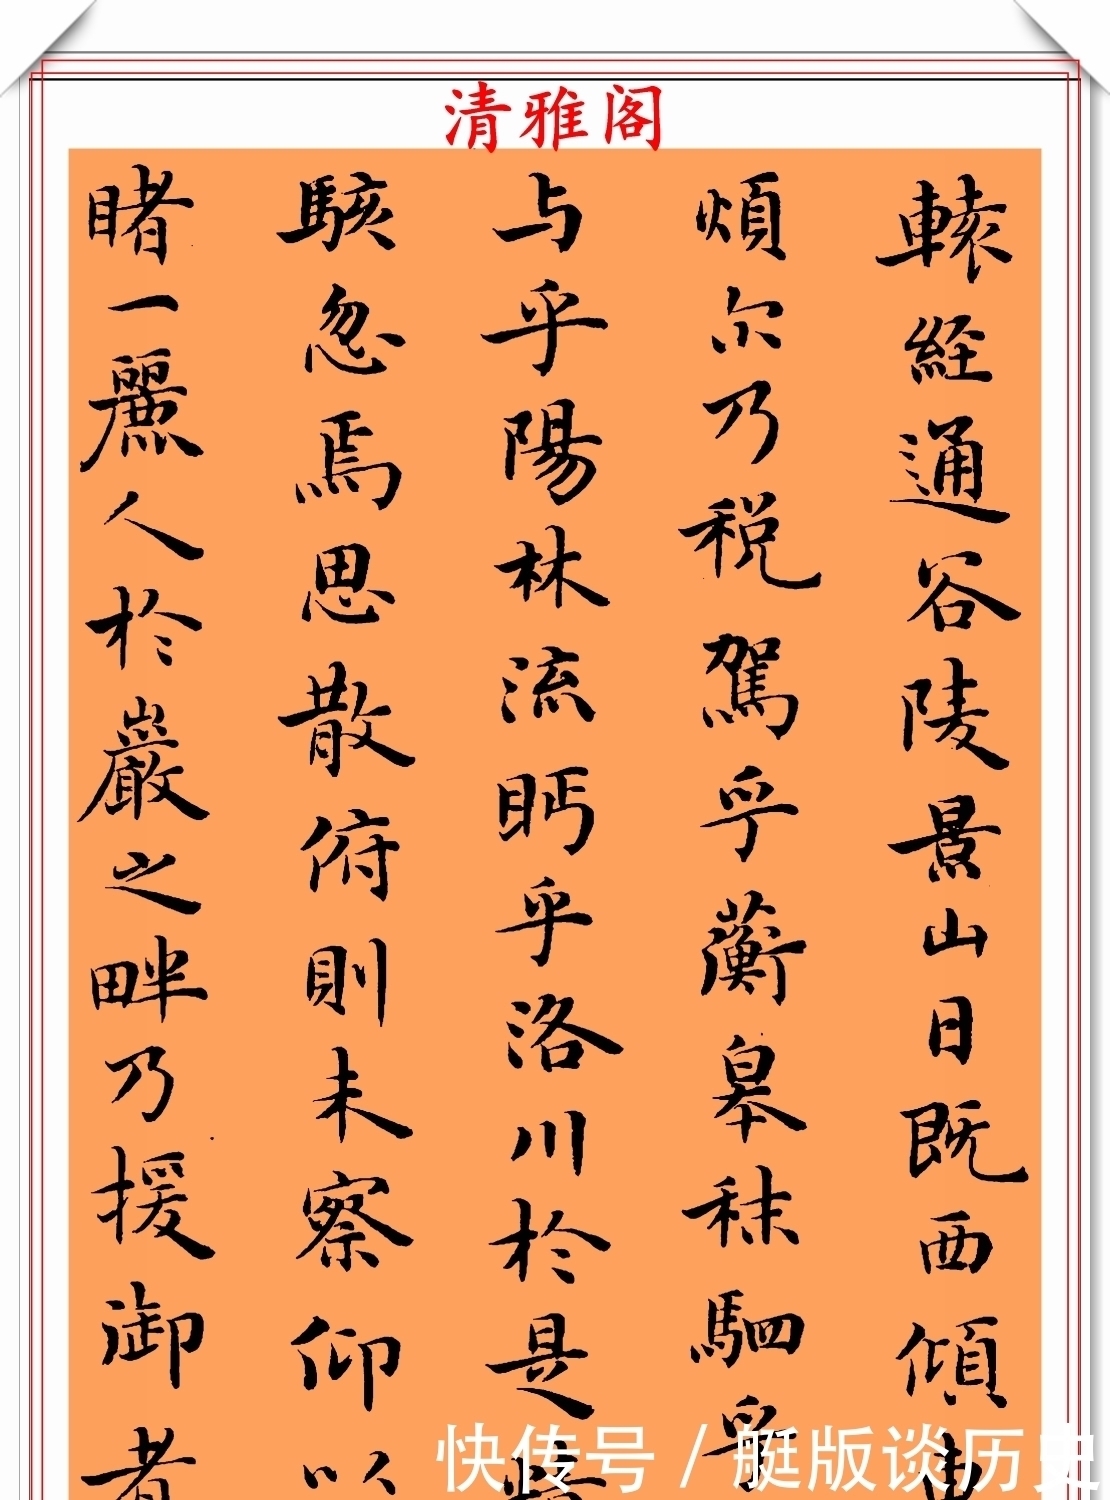 清雅阁
轅經通谷陵景山日既西傾車
煩尔乃税駕乎蘅皋秣駟乎
与乎陽林流眄乎洛川於是精
駭忽焉思散俯則未察仰以
睹一麗人於巖之畔乃援御者
快传号 / 艇版谈历史